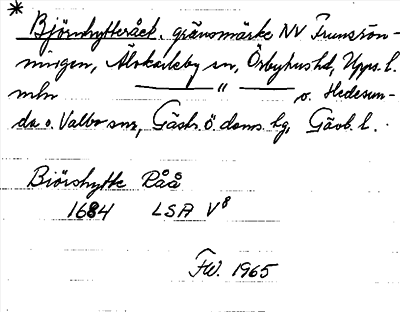 * Björnhytteråck. gränsmärke NV Trumsrön-
ningen, Älvkarleby sn, Örbyhus hd, Upps. l.
mln ——— " ——— o. Hedesun-
da o. Valbo snr, Gästr. ö. doms. hg, Gävb. l.
Biörshytte Råå
1684 LSA V8
FW. 1965